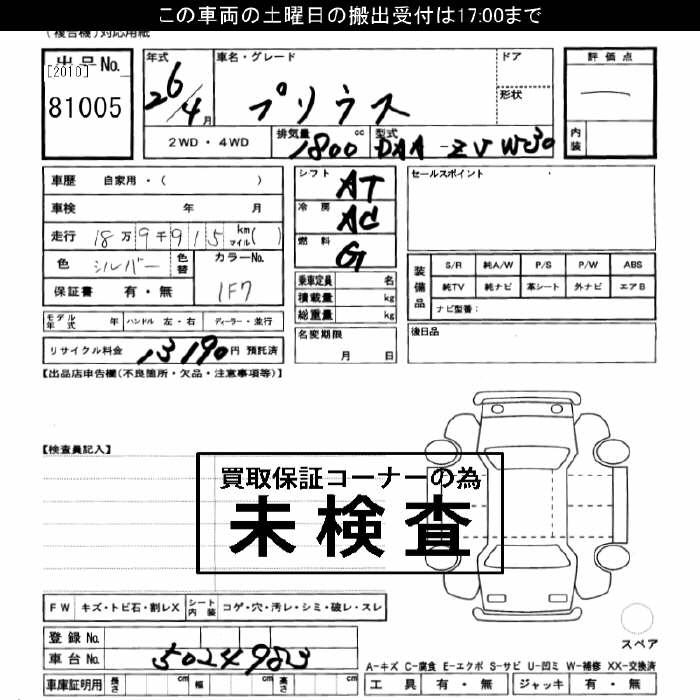 この車両の土曜日の搬出受付は17:00まで
(複合機)対応用紙
出品No. 年式 車名・グレード ドア 評価点
[2010] 26/4月 プリウス 形状
81005
2WD・4WD 排気量 1800 cc 型式 DAA-ZVW30 内装
車歴 自家用・( ) シフト AT セールスポイント
車検 年 月 冷房 AC
走行 18万9千915 km マイル( ) 燃料 G
色 シルバー 色替 カラーNo. 1F7 装備品 S/R 純A/W P/S P/W ABS
保証書 有・無 乗車定員 名 純TV 純ナビ 革シート 外ナビ エアB
積載量 kg ナビ型番:
モデル年式 年 ハンドル 左・右 ディーラー・並行 総重量 kg
リサイクル料金 13190円 預託済 名変期限 月 日 後日品
【出品店申告欄(不良箇所・欠品・注意事項等)】
【検査員記入】
買取保証コーナーの為
未検査
FW キズ・トビ石・割レX シート内装 コゲ・穴・汚レ・シミ・破レ・スレ
登録No.
スペア
車台No. 5024983
A-キズ C-腐食 E-エクボ S-サビ U-凹ミ W-補修 XX-交換済
車庫証明用 長さ cm 幅 cm 高さ cm 工具 有・無 ジャッキ 有・無